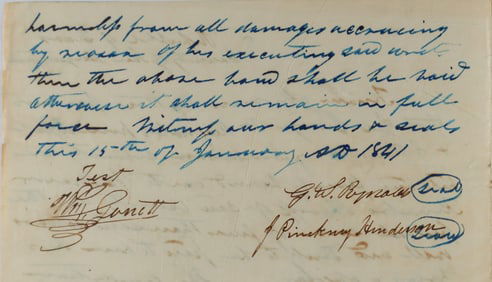 harmless from all damages accrucing
by reason of his executing said writ
then the above bond shall be void
otherwise it shall remain in full
force Witness our hands & seals
this 15th of January AD 1841
Test
G. S.
Seal
J Pinckney Henderson
Seal